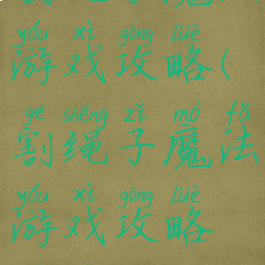 yóu xì gōng lüè
游戏攻略(
gē shéng zǐ mó fǎ
割绳子魔法
yóu xì gōng lüè
游戏攻略